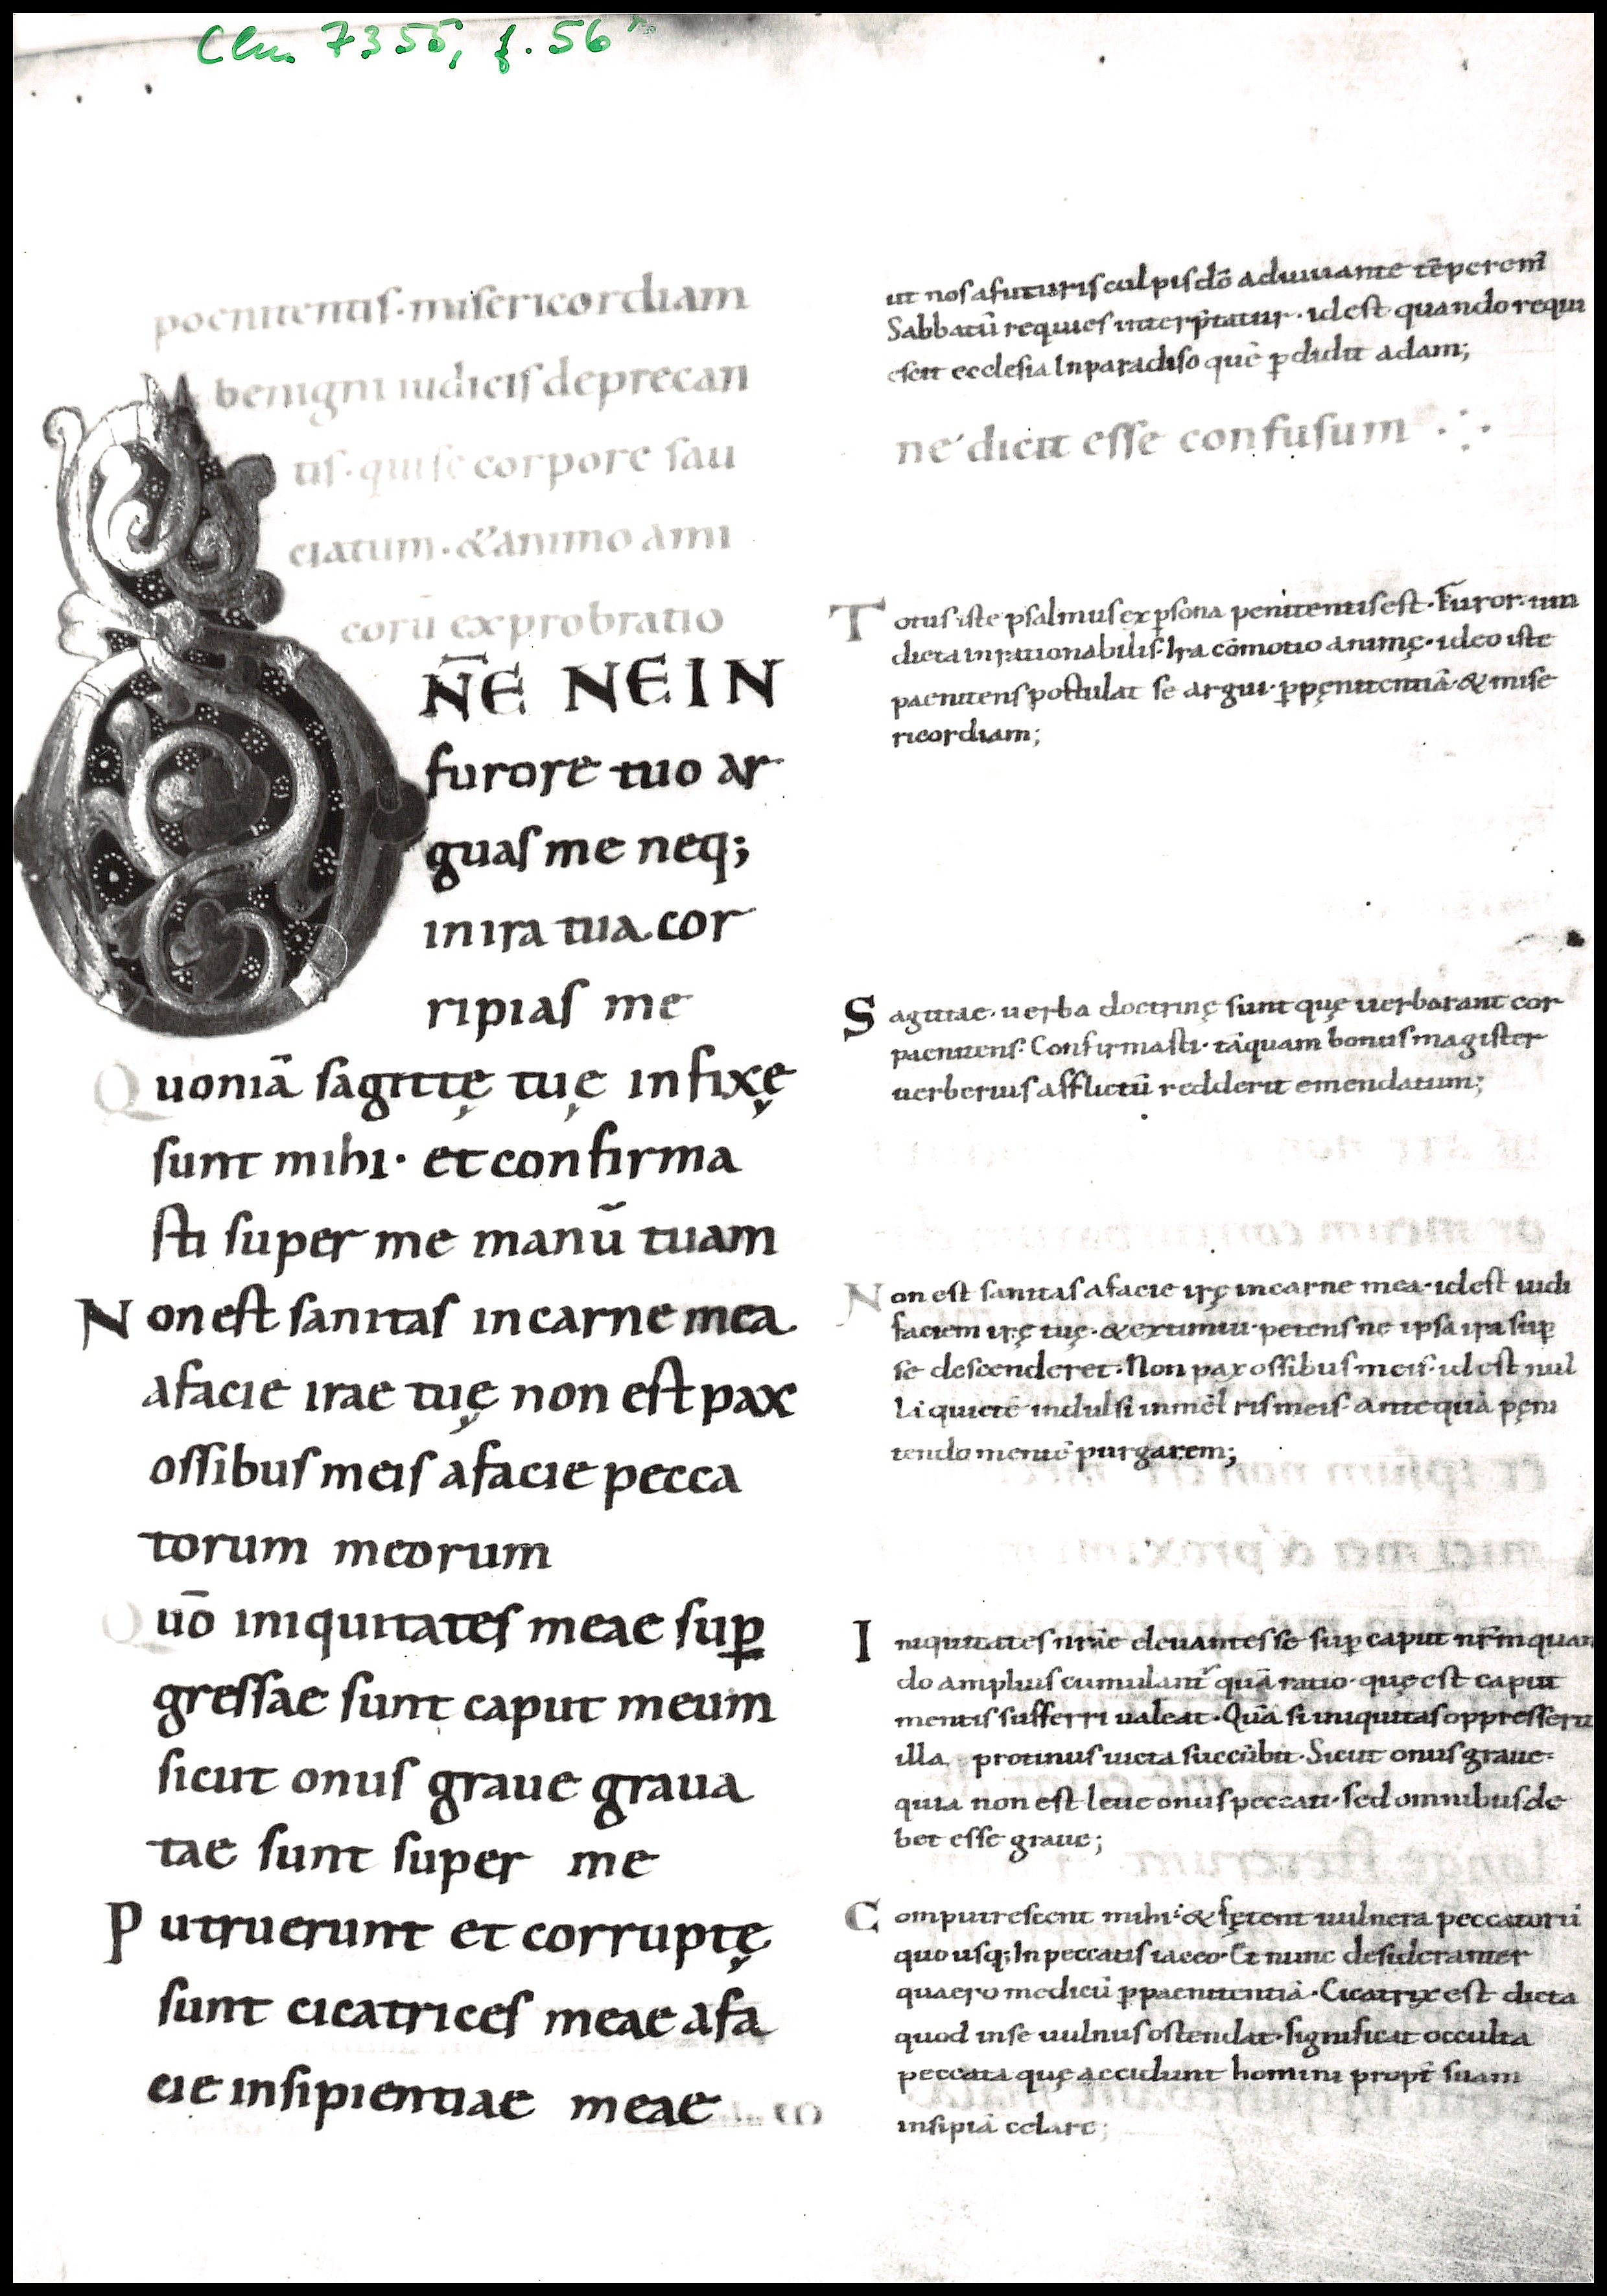 Clm 7355, f. 56r
poenitentis · misericordiam
benigni iudicis deprecan
tis · qui se corpore sau
ciatum · & animo ami
corū exprobratio
DN̄E NE IN
furore tuo ar
guas me neq;
in ira tua cor
ripias me
Quoniā sagittę tuę infixę
sunt mihi · et confirma
sti super me manū tuam
Non est sanitas in carne mea
a facie irae tuę non est pax
ossibus meis a facie pecca
torum meorum
Quō iniquitates meae suꝑ
gressae sunt caput meum
sicut onus graue graua
tae sunt super me
Putruerunt et corruptę
sunt cicatrices meae a fa
cie insipientiae meae
ut nos a futuris culpis dō adiuuante tēperem̄
Sabbatū requies interp̄tatur · id est quando requi
escit ecclesia In paradiso quē ꝑdidit adam;
ne dicit esse confusum
Totus iste psalmus ex ꝑsona penitentis est · Furor · im
dicta inrationabilis · Ira cōmotio animę · ideo iste
paenitens postulat se argui · ꝑ pęnitentiā · & mise
ricordiam;
Sagittae · uerba doctrinę sunt quę uerberant cor
paenitens · Confirmasti · tāquam bonus magister
uerberius afflictū redderit emendatum;
Non est sanitas a facie irę in carne mea · id est uidi
faciem irę tuę · & extimui · petens ne ipsa ira suꝑ
se descenderet · Non pax ossibus meis · id est nul
li quietē indulsi in mēƀris meis · antequā pęni
tendo mentē purgarem;
Iniquitates nr̄ae eleuantes se suꝑ caput nr̄m quan
do amplius cumulant̄ quā ratio · quę est caput
mentis sufferri ualeat · Quā si iniquitas oppresserit
illa protinus uicta succūbit · Sicut onus graue ·
quia non est leue onus peccati · sed omnibus de
bet esse graue;
Computrescent mihi · & fętent uulnera peccatorū
quo usq; In peccatis iaceo · Et nunc desideranter
quaero medicū ꝑ paenitentiā · Cicatrix est dicta
quod in se uulnus ostendat · significat occulta
peccata quę accidunt homini propt̄ suam
insipiā celare;